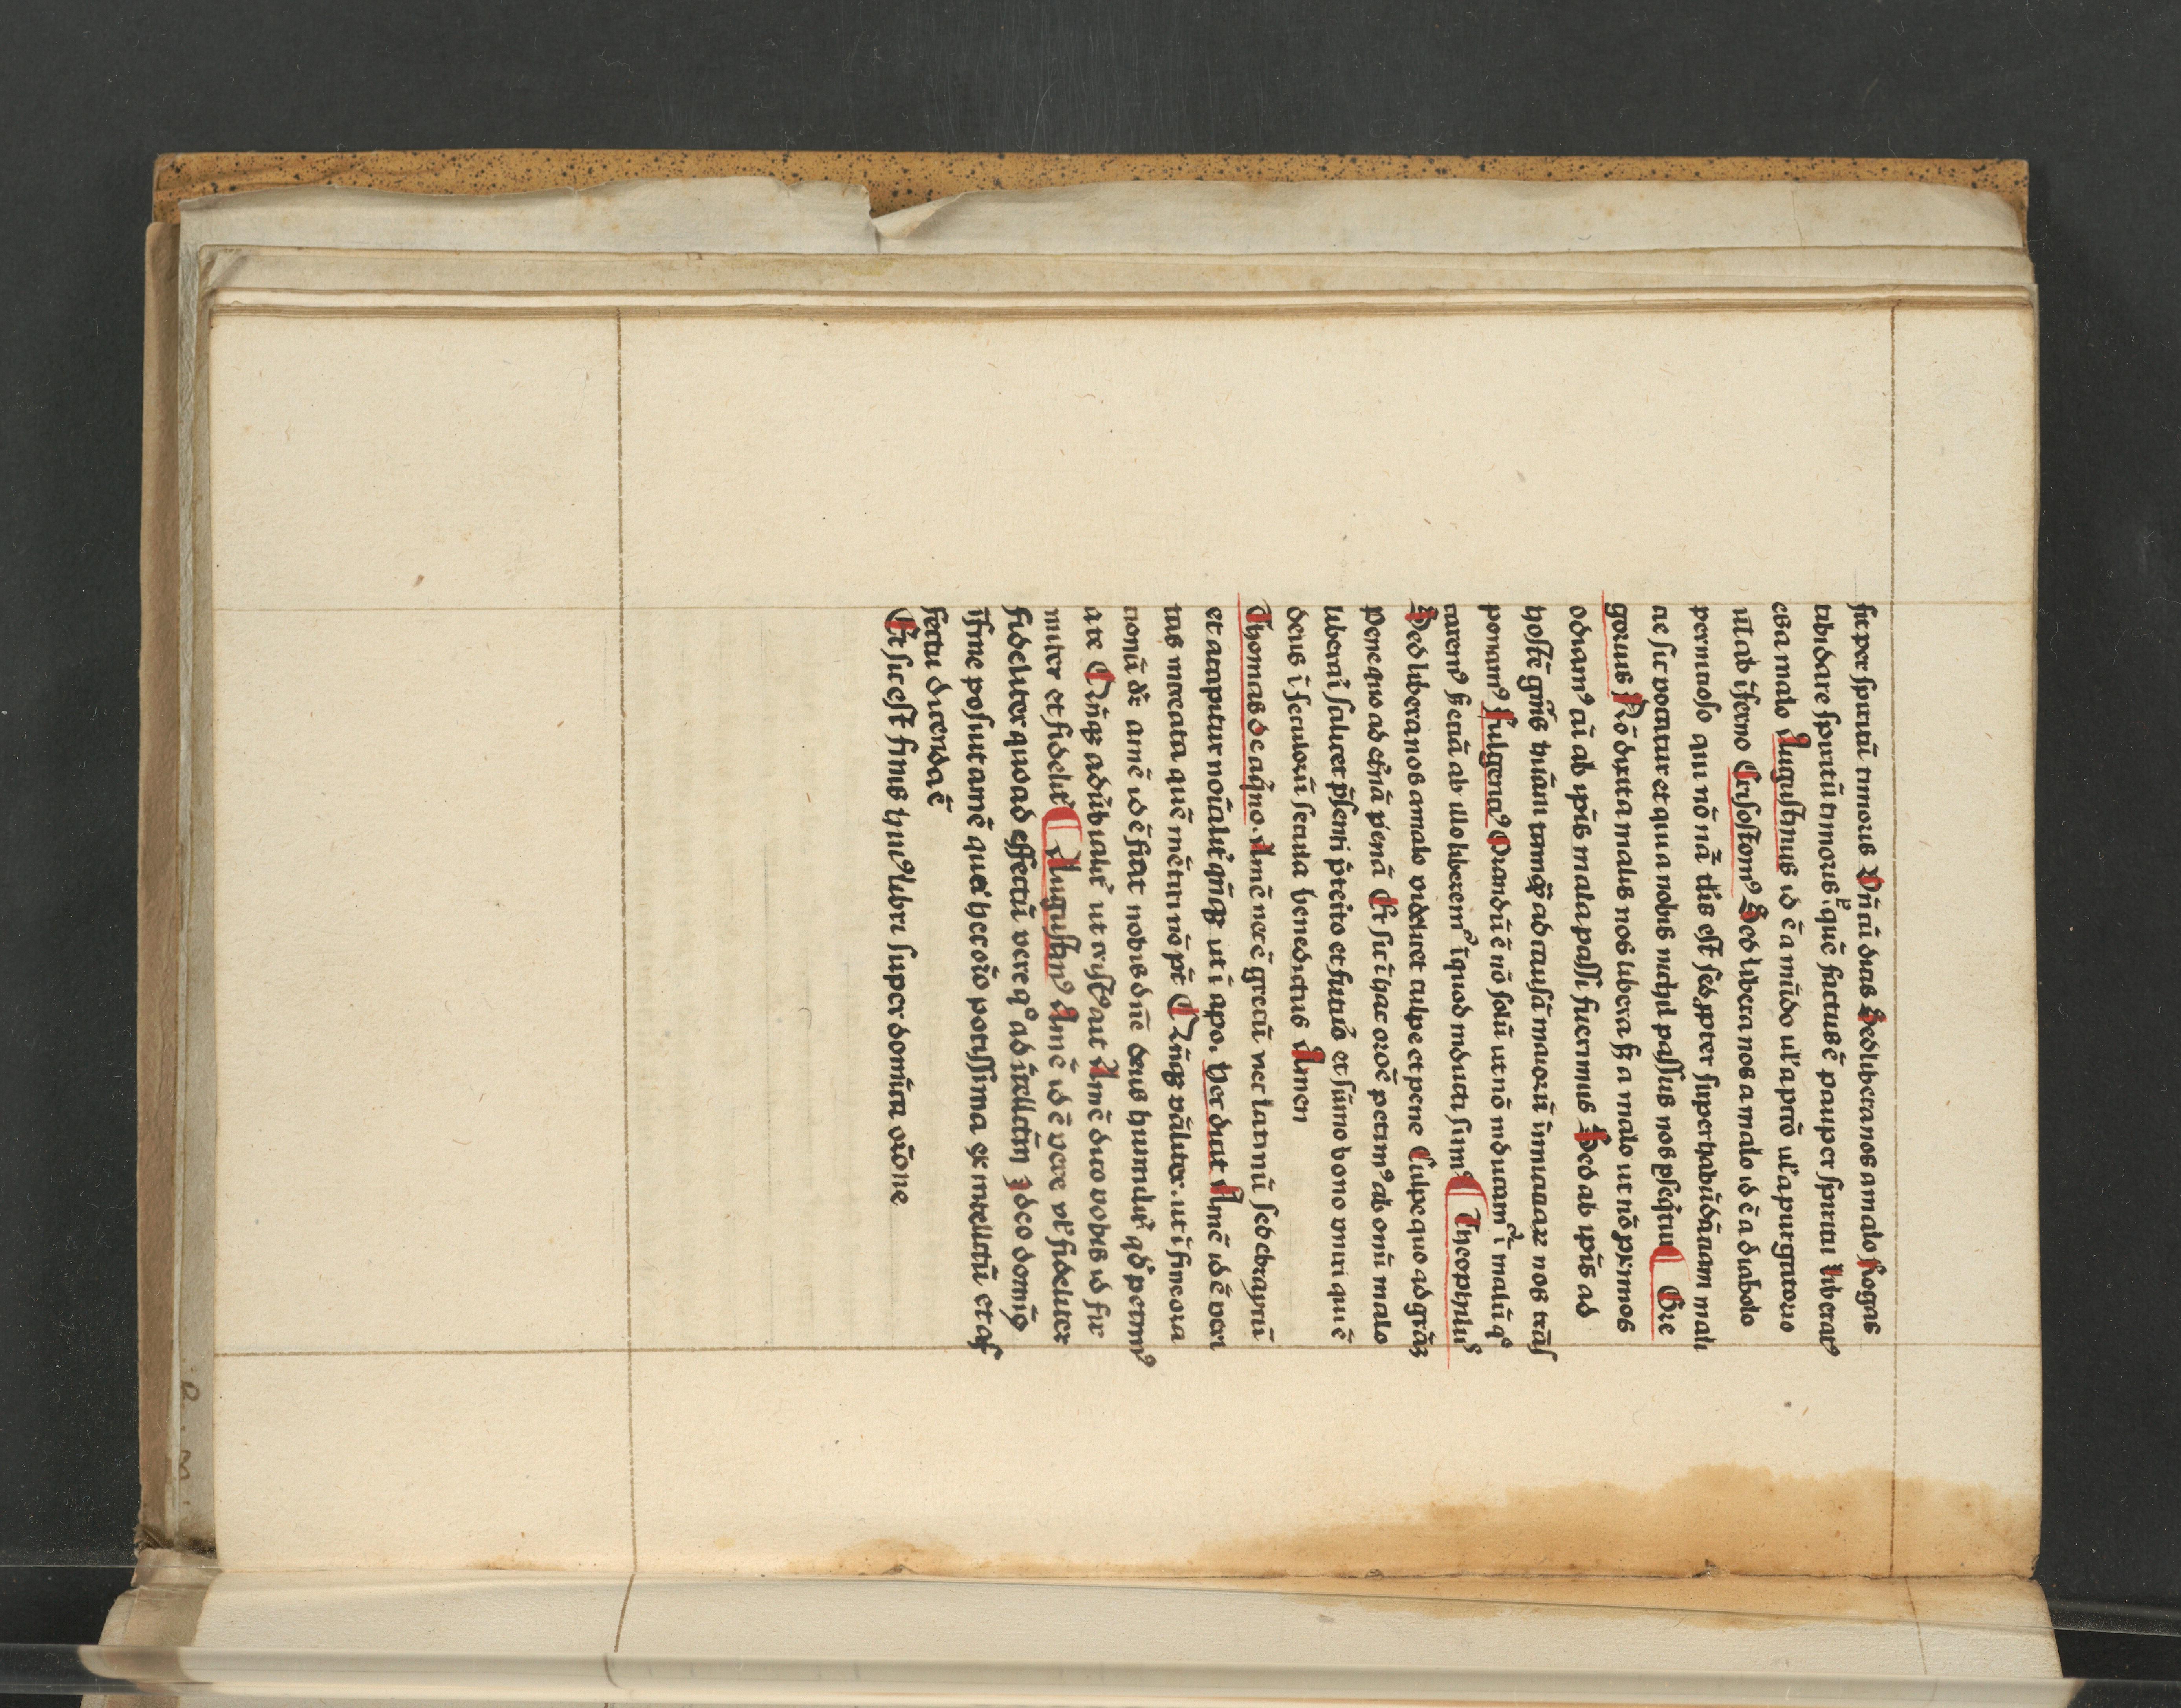 sit per spiritū timoris Vn̄ cū dicis Sed libera nos a malo Rogas
tibi dare spiritū timoris. quē factus ē pauper spiritu Liberat᷒
es a malo Augustinus id ē a mūdo ul̓ a pctō ul̓ a purgatorio
ul̓ ab īferno Crisostom᷒ Sed libera nos a malo id ē a diabolo
pernicioso qui nō nā tal̓is est sed ꝓpter superhabūdātiam mali
ac sic vocatur et quia nobis nichil passus nos pseq̄tur Gre
gorius Nō dixit a malis nos libera sꝫ a malo ut nō ꝓximos
odiam᷒ cū ab ip̄is mala passi fuerimus Sed ab ip̄is ad
hostē gn̄is hūani tamq̄ ad causā malorū īimicitiaꝝ nos trās
ponam᷒ Fulgenci᷒ Orandū ē nō solū ut nō inducam᷒ ī malū qd̓
carem᷒ sꝫ etiā ab illo liberem᷒ ī quod inducti sum᷒ Theophilu᷒
Sed libera nos a malo videlicet culpe et pene Culpe quo ad grāꝫ
Pene quo ad et̓nā penā Et sic ī hac orōe petim᷒ ab omī malo
liberari scilicet p̄senti p̄terito et futuro et sūmo bono uniri quē
deus ī seculorū secula benedictus Amen
Thomas de aq̄no. Amē nec ē grecū nec latinū sed ebraycū
et accipitur noīalit̓ qn̄qꝫ ut ī apo. hec dicit Amē id ē veri
tas increata quē mētiri nō pt̄ Qn̄qꝫ v̄balit̓. ut ī fine ora
tionū dr̄ amē id ē fiat nobis dn̄e deus humilit̓ qd̓ petim᷒
a te Qn̄qꝫ adūbialit̓ ut crist᷒ ait Amē dico vobis id ē fir
miter et fidelit̓ Augustin᷒ Amē id ē vere ul̓ fideliter
fideliter quo ad effectū vere q° ad ītellctm̄ Ideo domin᷒
ī fine posuit amē quia hec orō potissima ex intellctū et af
fectu dicenda ē
Et sic est finis hui᷒ libri super domīca orōne